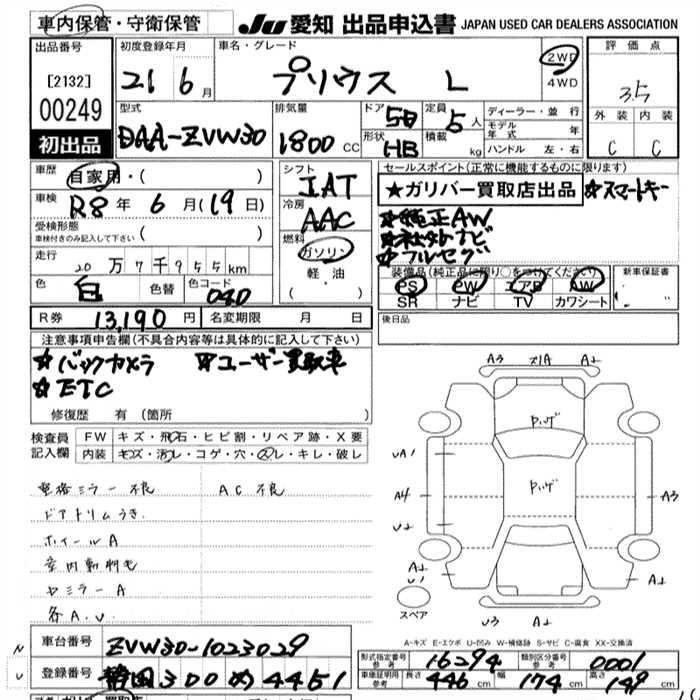 車内保管・守衛保管 JU 愛知 出品申込書 JAPAN USED CAR DEALERS ASSOCIATION
出品番号 初度登録年月 車名・グレード 評価点
[2132] 21 6月 プリウス L 2WD 4WD 3.5
00249 型式 排気量 ドア 5D 定員 5人 ディーラー・並行 外装 内装
初出品 DAA-ZVW30 1800CC 形状 HB 積載 kg モデル年式 年 ハンドル 左・右 C C
車歴 自家用・( ) シフト セールスポイント(正常に機能するものに限ります)
車検 R8年 6月(19日) IAT ★ガリバー買取店出品 ★スマートキー
受検形態 ( ) 冷房 ★純正AW
車検付きのみ記入して下さい AAC ★社外ナビ
走行 20万7千955km 燃料 ガソリン ★フルセグ
軽・油 装備品(純正品に限り○をつけてください) 新車保証書
色 白 色替 色コード 040 ・( ) PS PW エアB AW
SR ナビ TV カワシート
R券 13,190円 名変期限 月 日 後日品
注意事項申告欄(不具合内容等は具体的に記入して下さい)
★バックカメラ ★ユーザー買取車
★ETC
修復歴 有(箇所 )
検査員 FW キズ・飛石・ヒビ割・リペア跡・X要
記入欄 内装 キズ・汚レ・コゲ・穴・スレ・キレ・破レ
電格ミラー不良 AC不良
ドアトリムうき
ホイールA
室内動物毛
ヤミラーA
各A.U.
A3 ズレA A2
P.ハゲ
UA1
A4 P.ハゲ A3
U2
A2 U1 A2 A2
スペア U3 A2
A-キズ E-エクボ U-凹み W-補修跡 S-サビ C-腐食 XX-交換済
車台番号 ZVW30-1023029 型式指定番号 参考 16294 類別区分番号 参考 0001
登録番号 静岡300め4451 車庫証明用 参考 長さ 446cm 幅 174cm 高さ 149cm